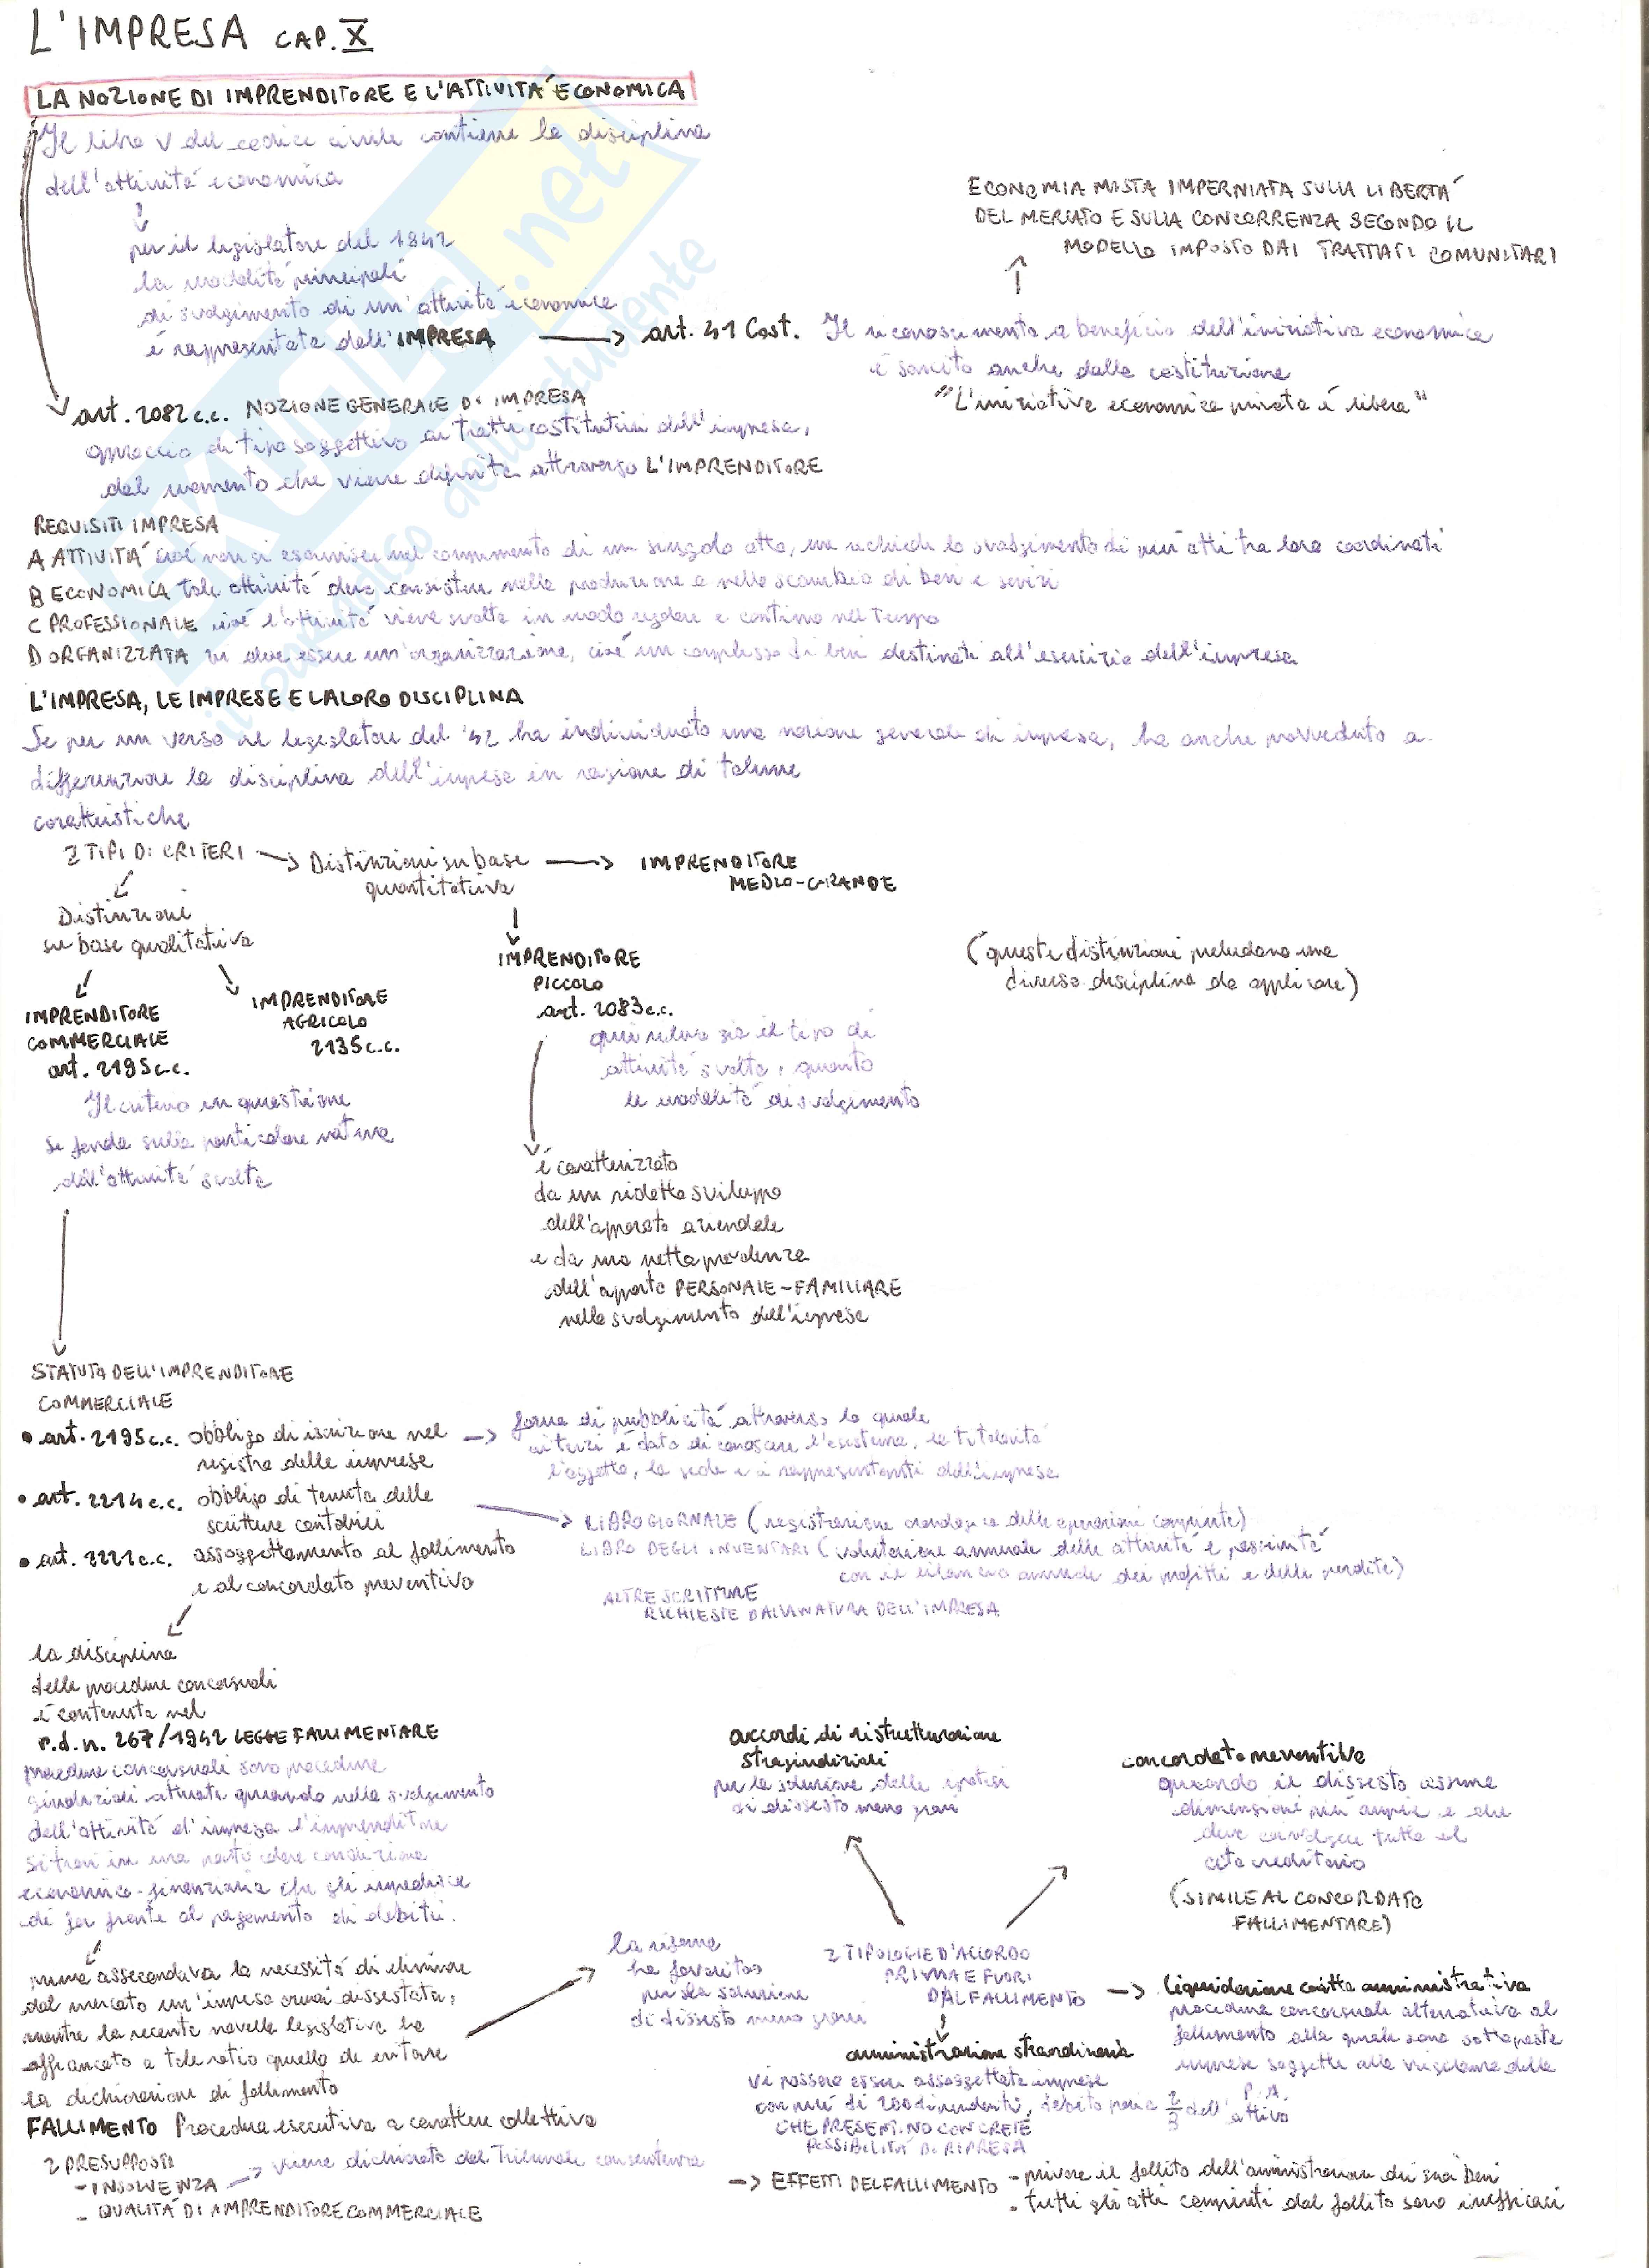 L'IMPRESA CAP. X
LA NOZIONE DI IMPRENDITORE E L'ATTIVITÁ ECONOMICA
Il libro V del codice civile contiene la disciplina
dell'attivitá economica
per il legislatore del 1942
la modalitá principali
di svolgimento di un'attivitá economica
é rappresentata dall'IMPRESA
art. 41 Cost. Il riconoscimento a beneficio dell'iniziativa economica
é sancito anche dalla costituzione
"L'iniziativa economica privata é libera"
ECONOMIA MISTA IMPERNIATA SULLA LIBERTÁ
DEL MERCATO E SULLA CONCORRENZA SECONDO IL
MODELLO IMPOSTO DAI TRATTATI COMUNITARI
art. 2082 c.c. NOZIONE GENERALE DI IMPRESA
approccio di tipo soggettivo ai tratti costitutivi dell'impresa,
dal momento che viene definita attraverso L'IMPRENDITORE
REQUISITI IMPRESA
A ATTIVITÁ cioé non si esaurisce nel compimento di un singolo atto, ma richiede lo svolgimento di piú atti tra loro coordinati
B ECONOMICA tale attivitá deve consistere nella produzione o nello scambio di beni e servizi
C PROFESSIONALE cioé l'attivitá viene svolta in modo regolare e continuo nel tempo
D ORGANIZZATA vi deve essere un'organizzazione, cioé un complesso di beni destinati all'esercizio dell'impresa
L'IMPRESA, LE IMPRESE E LA LORO DISCIPLINA
Se per un verso il legislatore del '42 ha individuato una nozione generale di impresa, ha anche provveduto a
differenziare la disciplina dell'impresa in ragione di talune
caratteristiche
2 TIPI DI CRITERI
Distinzioni su base
quantitativa
IMPRENDITORE
MEDIO-GRANDE
Distinzioni
su base qualitativa
IMPRENDITORE
COMMERCIALE
art. 2195 c.c.
IMPRENDITORE
AGRICOLO
2135 c.c.
IMPRENDITORE
PICCOLO
art. 2083 c.c.
(queste distinzioni preludono una
diversa disciplina da applicare)
qui rileva sia il tipo di
attivitá svolta, quanto
le modalitá di svolgimento
Il criterio in questione
si fonda sulla particolare natura
dell'attivitá svolta
é caratterizzato
da un ridotto sviluppo
dell'apparato aziendale
e da una netta prevalenza
dell'apporto PERSONALE-FAMILIARE
nello svolgimento dell'impresa
STATUTO DELL'IMPRENDITORE
COMMERCIALE
• art. 2195 c.c. obbligo di iscrizione nel
registro delle imprese
forma di pubblicitá attraverso la quale
ai terzi é dato di conoscere l'esistenza, la titolaritá
l'oggetto, la sede e i rappresentanti dell'impresa
• art. 2214 c.c. obbligo di tenuta delle
scritture contabili
LIBRO GIORNALE (registrazione cronologica delle operazioni compiute)
LIBRO DEGLI INVENTARI (valutazione annuale delle attivitá e passivitá
con il bilancio annuale dei profitti e delle perdite)
ALTRE SCRITTURE
RICHIESTE DALLA NATURA DELL'IMPRESA
• art. 2221 c.c. assoggettamento al fallimento
e al concordato preventivo
la disciplina
delle procedure concorsuali
é contenuta nel
r.d. n. 267/1942 LEGGE FALLIMENTARE
procedure concorsuali sono procedure
giudiziali attuate quando nello svolgimento
dell'attivitá d'impresa l'imprenditore
si trovi in una particolare condizione
economico-finanziaria che gli impedisce
di far fronte al pagamento di debiti.
prima assecondava la necessitá di eliminare
dal mercato un'impresa ormai dissestata,
mentre la recente novella legislativa ha
affiancato a tale ratio quello di evitare
la dichiarazione di fallimento
la riforma
ha favorito
per la soluzione
di dissesto meno gravi
accordi di ristrutturazione
stragiudiziali
per la soluzione delle ipotesi
di dissesto meno gravi
concordato preventivo
quando il dissesto assume
dimensioni piú ampie e che
deve coinvolgere tutto il
ceto creditorio
(SIMILE AL CONCORDATO
FALLIMENTARE)
2 TIPOLOGIE D'ACCORDO
PRIMA E FUORI
DAL FALLIMENTO
liquidazione coatta amministrativa
procedura concorsuale alternativa al
fallimento alla quale sono sottoposte
imprese soggette alla vigilanza della
P.A.
amministrazione straordinaria
vi possono essere assoggettate imprese
con piú di 200 dipendenti, debito pari a 2/3 dell'attivo
CHE PRESENTINO CONCRETE
POSSIBILITÁ DI RIPRESA
FALLIMENTO Procedura esecutiva a carattere collettivo
2 PRESUPPOSTI
- INSOLVENZA
viene dichiarato dal Tribunale con sentenza
- QUALITÁ DI IMPRENDITORE COMMERCIALE
EFFETTI DEL FALLIMENTO - privare il fallito dell'amministrazione dei suoi beni
- tutti gli atti compiuti dal fallito sono inefficaci
SKUOLA.net
il paradiso dello studente